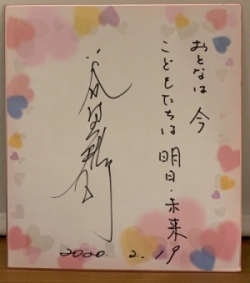 おとなは 今
こどもたちは 明日・未来
2020. 2. 19